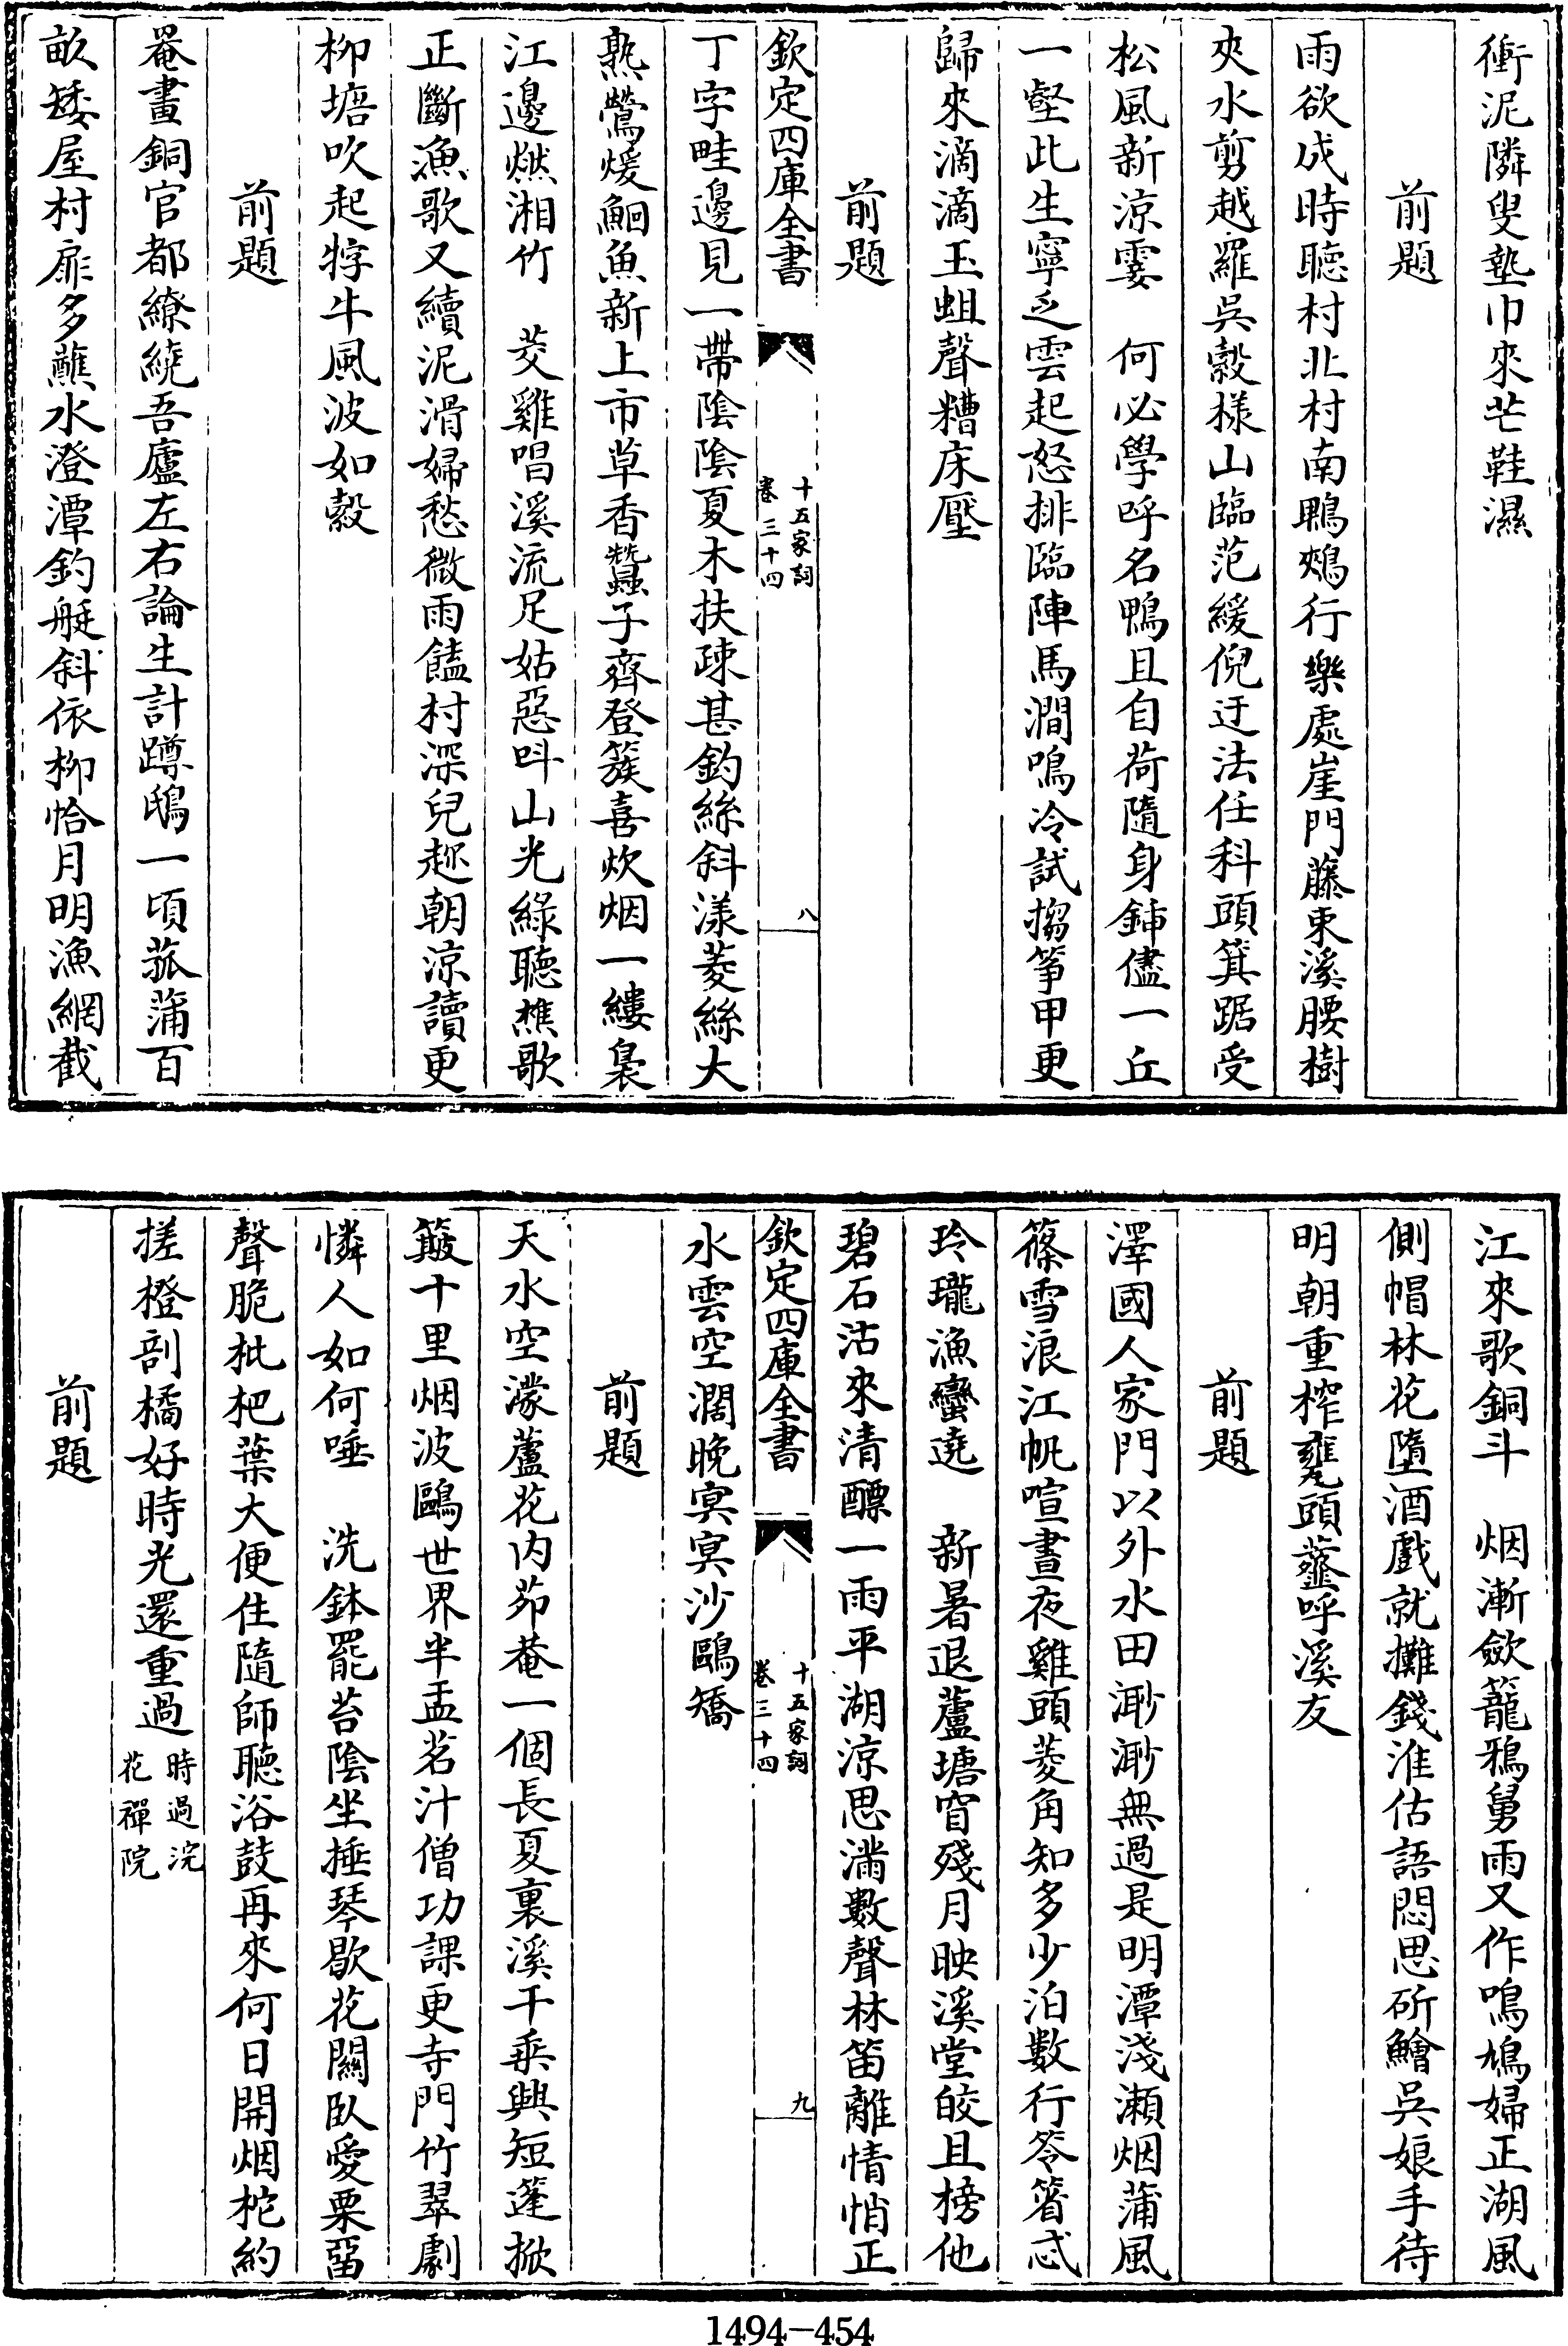 衝泥隣叟墊巾來芒鞋濕
前題
雨欲成時聽村北村南鵯鵊行樂處崖門藤束溪腰樹
夾水剪越羅吳縠樣山臨范緩倪迂法任科頭箕踞受
松風新涼霎　何必學呼名鴨且自荷隨身鍤儘一丘
一壑此生寧乏雲起怒排臨陣馬澗鳴冷試搊筝甲更
歸來滴滴玉蛆聲糟床壓
前題
欽定四庫全書
十五家詞
卷三十四
八
丁字畦邊見一帶陰陰夏木扶疎甚釣絲斜漾菱絲大
熟鶯煖鮰魚新上市草香蠶子齊登簇喜炊烟一縷裊
江邊燃湘竹　茭雞唱溪流足姑惡呌山光綠聽樵歌
正斷漁歌又續泥滑婦愁微雨饁村深兒趂朝涼讀更
柳塘吹起牸牛風波如縠
前題
罨畫銅官都繚繞吾廬左右論生計蹲鴟一頃菰蒲百
畝矮屋村扉多蘸水澄潭釣艇斜依柳恰月明漁網截
江來歌銅斗　烟漸斂籠鴉舅雨又作鳴鳩婦正湖風
側帽林花墮酒戲就攤錢淮估語悶思斫鱠吳娘手待
明朝重榨甕頭虀呼溪友
前題
澤國人家門以外水田渺渺無過是明潭淺瀨烟蒲風
篠雪浪江帆喧晝夜雞頭菱角知多少泊數行笭箵忒
玲瓏漁蠻遶　新暑退蘆塘窅殘月映溪堂皎且榜他
碧石沽來清醥一雨平湖涼思滿數聲林笛離情悄正
欽定四庫全書
十五家詞
卷三十四
九
水雲空濶晚冥冥沙鷗矯
前題
天水空濛蘆花内茆菴一個長夏裏溪干乗興短蓬掀
簸十里烟波鷗世界半盂茗汁僧功課更寺門竹翠劇
憐人如何唾　洗鉢罷苔陰坐捶琴歇花闌臥愛栗留
聲脆枇杷葉大便住隨師聽浴鼓再來何日開烟柁約
搓橙剖橘好時光還重過時過浣
花禪院
前題
1494-454